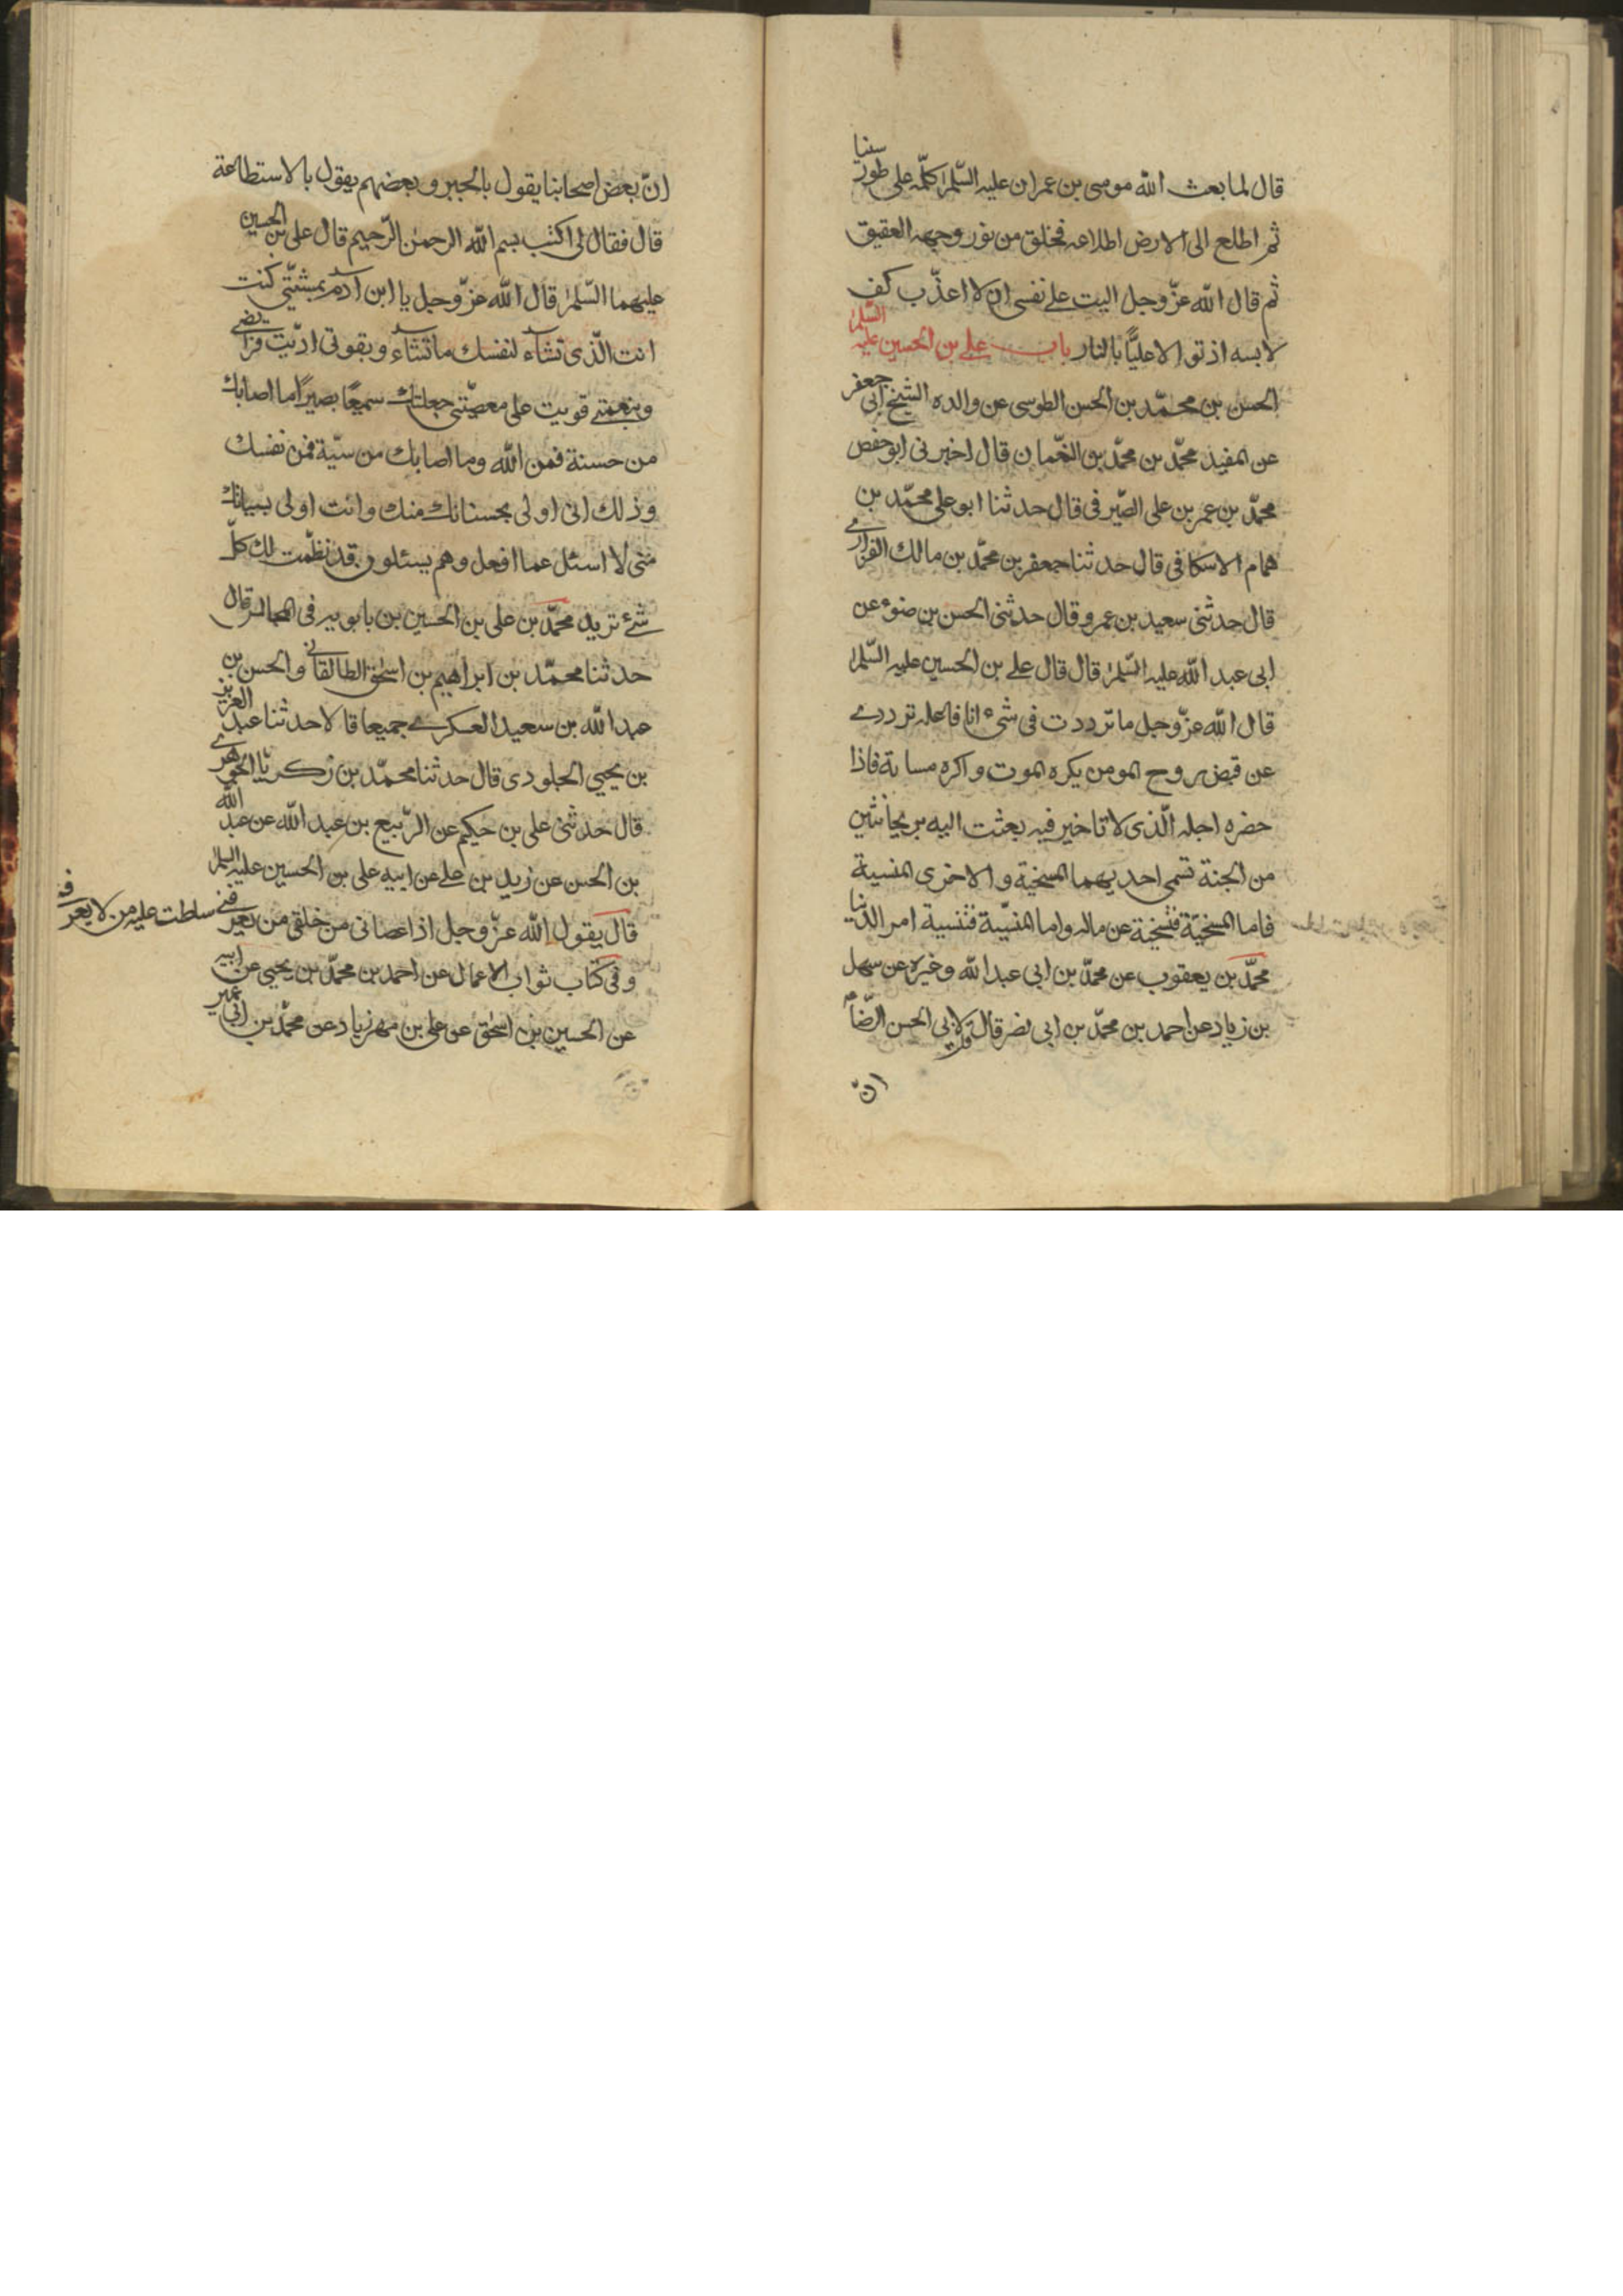 قال لما بعث الله موسى بن عمران عليه السّلم كلّمه على طور سينا
ثم اطلع الى الارض اطلاعه فخلق من نور وجهه العقيق
ثم قال الله عزّ وجل اليت على نفسى ان لا اعذّب كف
لابسه اذ تولا عليًّا بالنار باب على بن الحسين عليه السّلم
الحسن بن محمّد بن الحسن الطوسى عن والده الشيخ ابى جعفر
عن المفيد محمّد بن محمّد بن النعّمان قال اخبرنى ابو حفص
محمّد بن عمر بن على الصّيرفى قال حدثنا ابو على محمّد بن
همام الاسكافى قال حدثنا جعفر بن محمّد بن مالك الفزارى
قال حدثنى سعيد بن عمرو قال حدثنى الحسن بن ضوء عن
ابى عبد الله عليه السّلم قال قال على بن الحسين عليه السّلم
قال الله عزّ وجل ما ترددت فى شىء انا فاعله ترددى
عن قبض روح المومن يكره الموت واكره مساءته فاذا
حضره اجله الّذى لا تاخير فيه بعثت اليه بريحانتين
من الجنة تسمى احديهما المسخية والاخرى المنسية
فاما المسخيّة فتسخية عن ماله واما المنسيّة فتنسية امر الدّنيا
محمّد بن يعقوب عن محمّد بن ابى عبد الله وغيره عن سهل
بن زياد عن احمد بن محمّد بن ابى نصر قال قلت لابى الحسن الرّضا ع
انّ
انّ بعض اصحابنا يقول بالجبر وبعضهم يقول بالاستطاعة
قال فقال لى اكتب بسم الله الرحمن الرّحيم قال على بن الحسين
عليهما السّلم قال الله عزّ وجل يا ابن ادم بمشيّتى كنت
انت الّذى تشاء لنفسك ما تشاء وبقوتى ادّيت فرائضى
وبنعمتى قويت على معصيّتى جعلتك سميعًا بصيرًا ما اصابك
من حسنة فمن الله وما اصابك من سيّة فمن نفسك
وذلك انى اولى بحسناتك منك وانت اولى بسياتك
منى لا اسئل عما افعل وهم يسئلون قد نظّمت لك كلّ
شئ تريد محمّد بن على بن الحسين بن بابويه فى المجالس قال
حدثنا محمّد بن ابراهيم بن اسحق الطالقانى والحسن بن
عبد الله بن سعيد العسكرى جميعا قالا حدثنا عبد العزيز
بن يحيى الجلودى قال حدثنا محمّد بن زكريّا الجوهرى
قال حدثنى على بن حكيم عن الرّبيع بن عبد الله عن عبد الله
بن الحسن عن زيد بن على عن ابيه على بن الحسين عليه السلم
قال يقول الله عزّ وجل اذا عصانى من خلقى من يعرفنى سلطت عليه من لا يعرف
وفى كتاب ثواب الاعمال عن احمد بن محمّد بن يحيى عن ابيه
عن الحسين بن اسحق عن على بن مهزيار عن محمّد بن ابى عمير